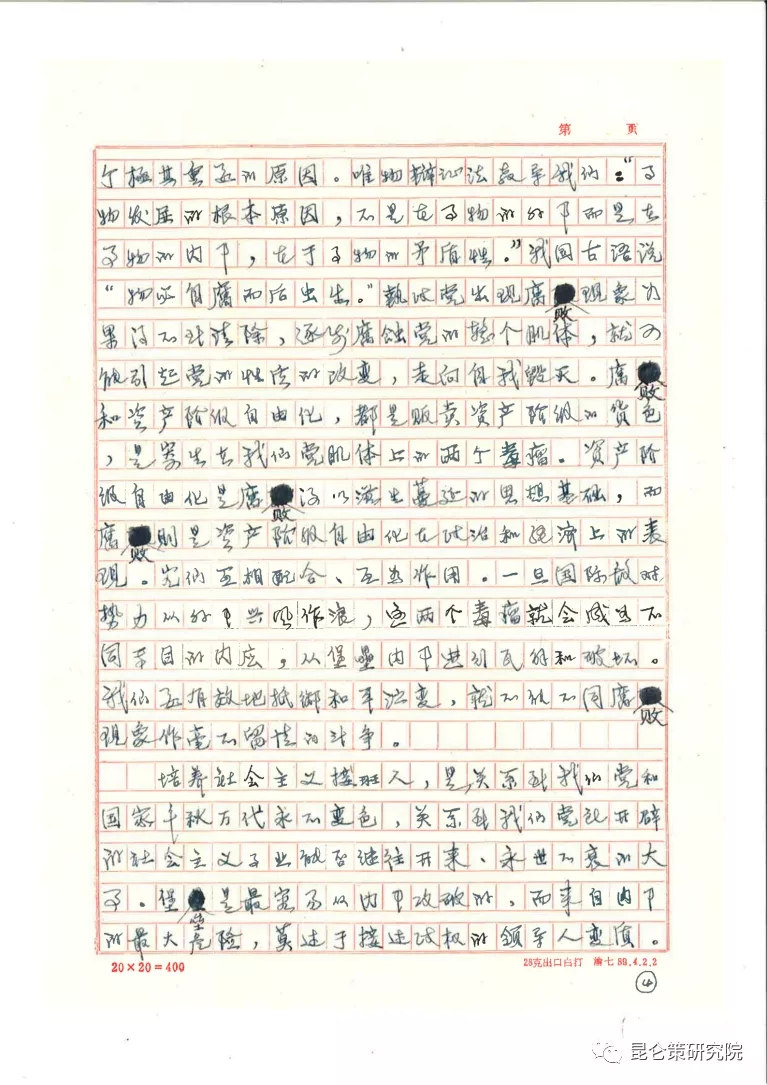 第 页
个极其重要的原因。唯物辩证法教导我们："事
物发展的根本原因，不是在事物的外部而是在
事物的内部，在于事物的矛盾性。"我国古语说
"物必自腐而后虫生。"执政党出现腐败现象如
果得不到清除，逐步腐蚀党的整个肌体，就可
能引起党的性质的改变，走向自我毁灭。腐败
和资产阶级自由化，都是贩卖资产阶级的货色
，是寄生在我们党肌体上的两个毒瘤。资产阶
级自由化是腐败得以滋生蔓延的思想基础，而
腐败则是资产阶级自由化在政治和经济上的表
现。它们互相配合、互为作用。一旦国际敌对
势力从外部兴风作浪，这两个毒瘤就会成为不
同节目的内应，从堡垒内部进行瓦解和破坏。
我们要有效地抵御和平演变，就不能不同腐败
现象作毫不留情的斗争。
培养社会主义接班人，是关系到我们党和
国家千秋万代永不变色，关系到我们党所开辟
的社会主义事业能否继往开来、永世不衰的大
事。堡垒是最容易从内部攻破的，而来自内部
的最大危险，莫过于接近政权的领导人变质。
20×20=400
28克出口白打 渝七 89.4.2.2
4
昆仑策研究院